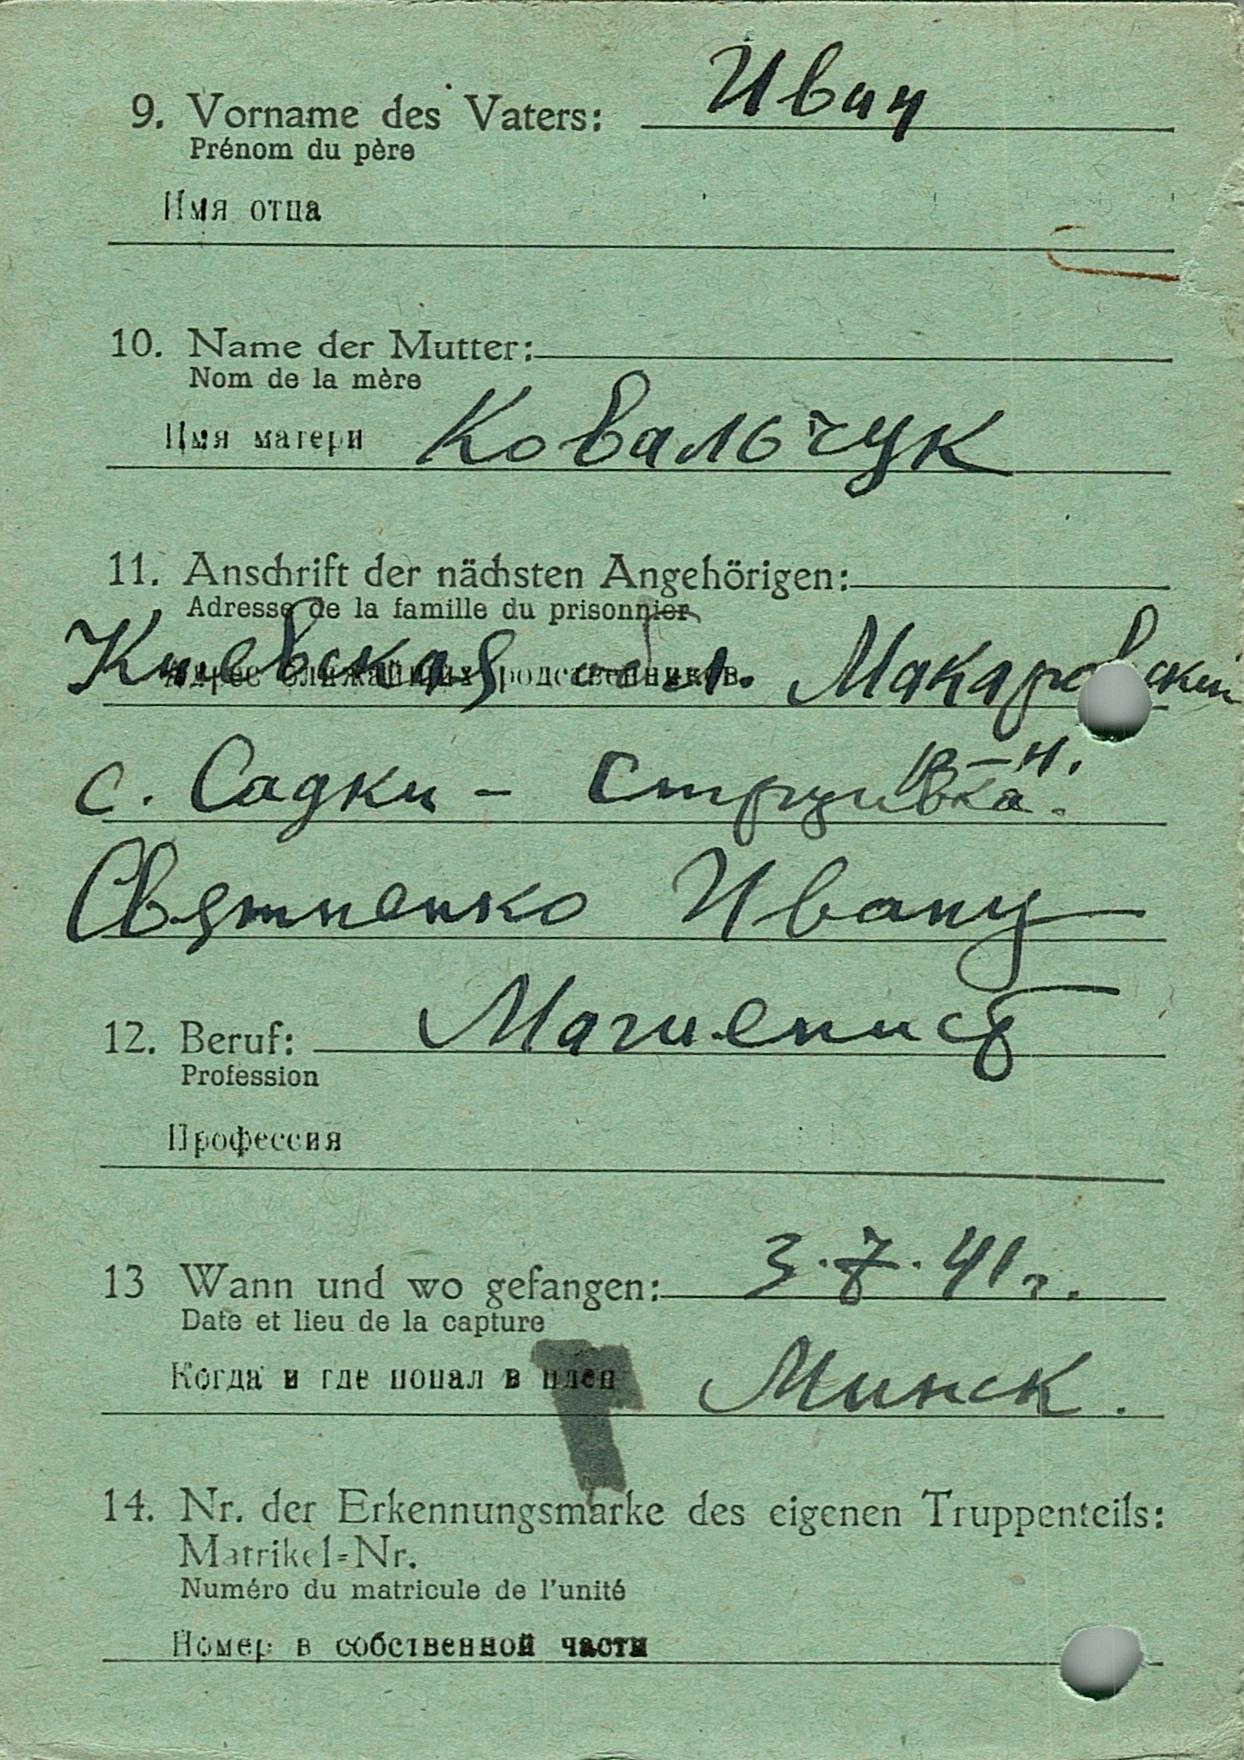 9. Vorname des Vaters: Иван
Prénom du père
Имя отца
10. Name der Mutter:
Nom de la mère
Имя матери Ковальчук
11. Anschrift der nächsten Angehörigen:
Adresse de la famille du prisonnier
Адрес ближайших родственников
Киевская обл. Макаровский
р-н.
с. Садки -
Святненко Ивану
12. Beruf:
Profession
Профессия
13 Wann und wo gefangen: 3.7.41г.
Date et lieu de la capture
Когда и где попал в плен Минск.
14. Nr. der Erkennungsmarke des eigenen Truppenteils:
Matrikel=Nr.
Numéro du matricule de l'unité
Номер в собственной части